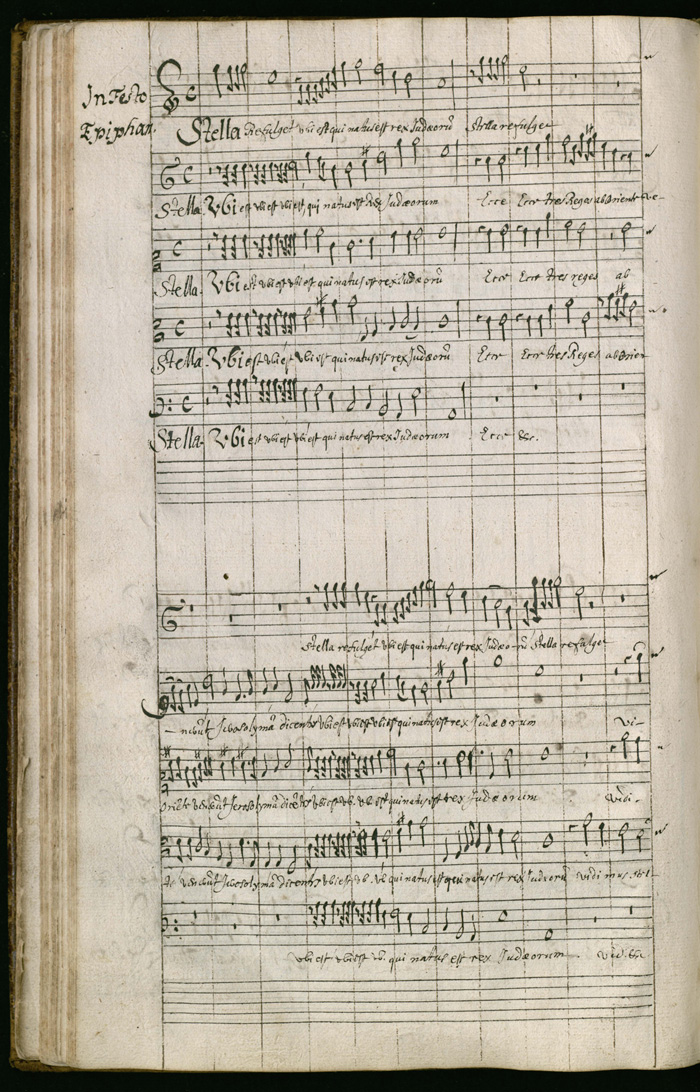 In Festo
Epiphan.
Stella Refulget vbi est qui natus est rex Judæorũ Stella refulget
Stella. Vbi est vbi est vbi est, qui natus est Rex Judæorum Ecce Ecce tres Reges ab Oriente ve-
Stella. Vbi est vbi est vbi est qui natus est rex Judæorũ Ecce Ecce tres reges ab
Stella. Vbi est vbi est vbi est qui natus est rex Judæorũ Ecce Ecce tres Reges ab Orien
Stella. Vbi est vbi est vbi est qui natus est rex Judæorum Ecce &c.
Stella refulget vbi est qui natus est rex Judæorũ Stella refulget
Jerosolymã dicentes vbi est vbi est vbi est qui natus est rex Judæorum Vi-
Jerosolymã dicẽtes vbi est vb. vbi est qui natus est rex Judæorum Vidi-
te Jerosolymã dicentes vbi est vb. vb. qui natus est qui natus est rex Judæorũ vidimus stel
vbi est vbi est vb. qui natus est rex Judæorum. Vid. &c.